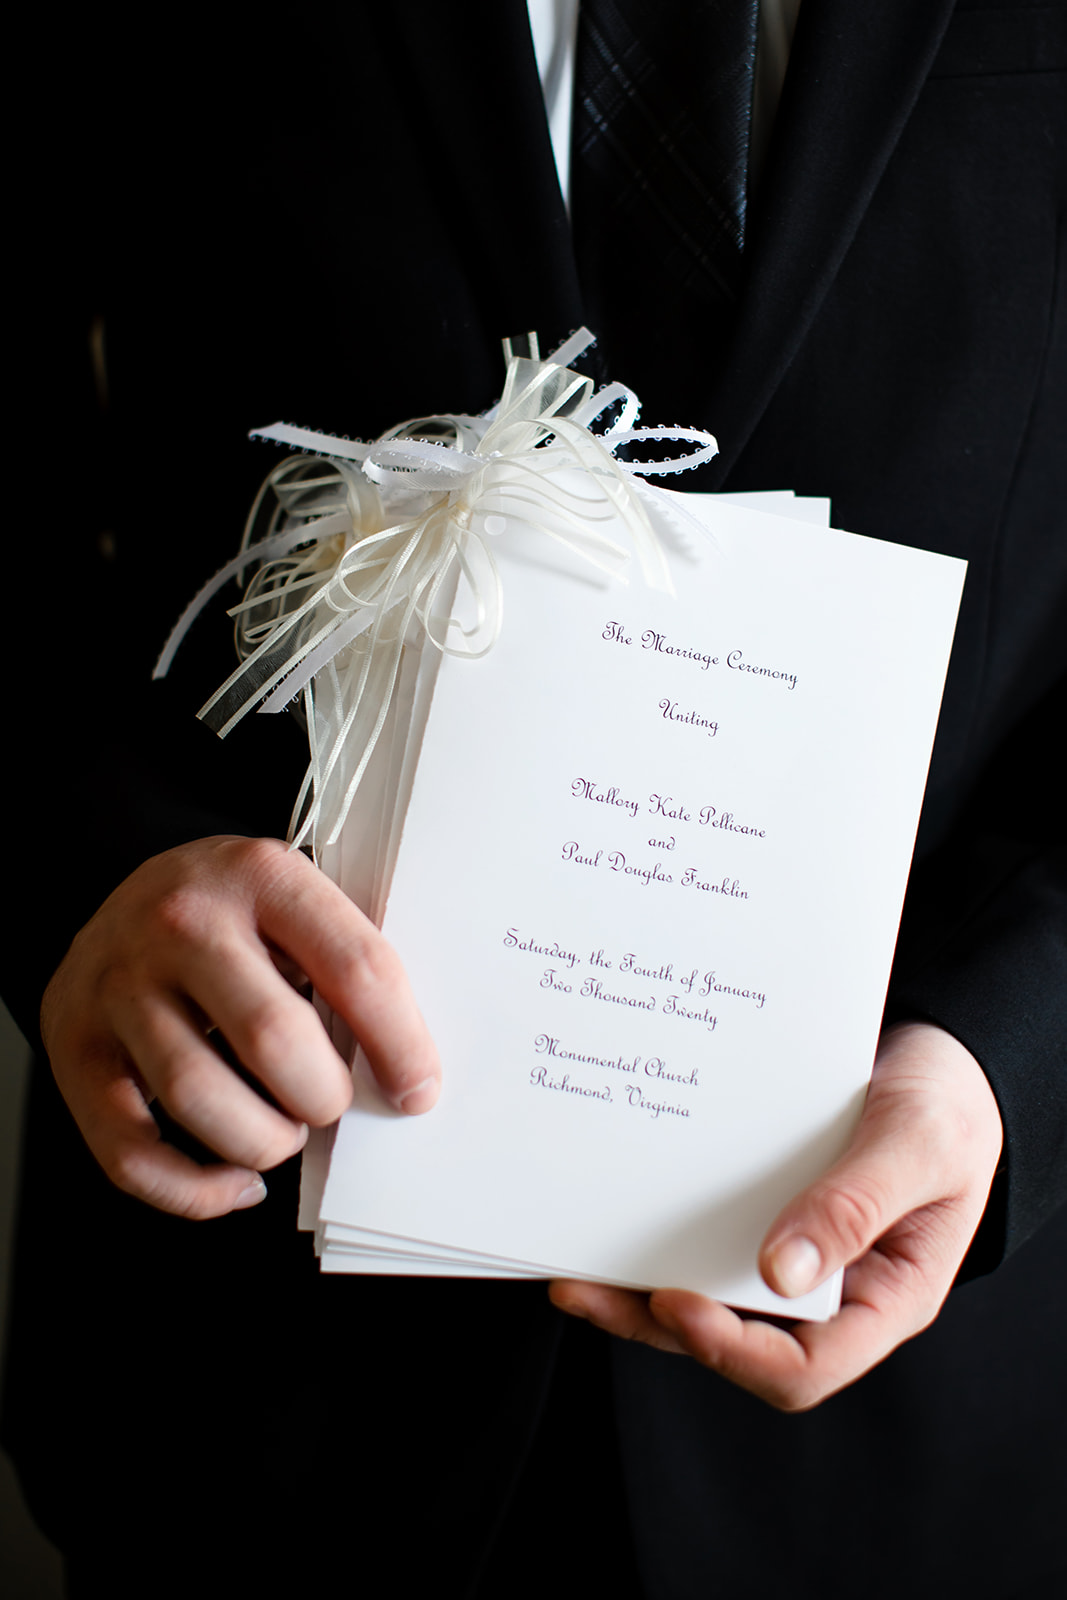 The Marriage Ceremony
Uniting
Mallory Kate Pellicane
and
Paul Douglas Franklin
Saturday, the Fourth of January
Two Thousand Twenty
Monumental Church
Richmond, Virginia